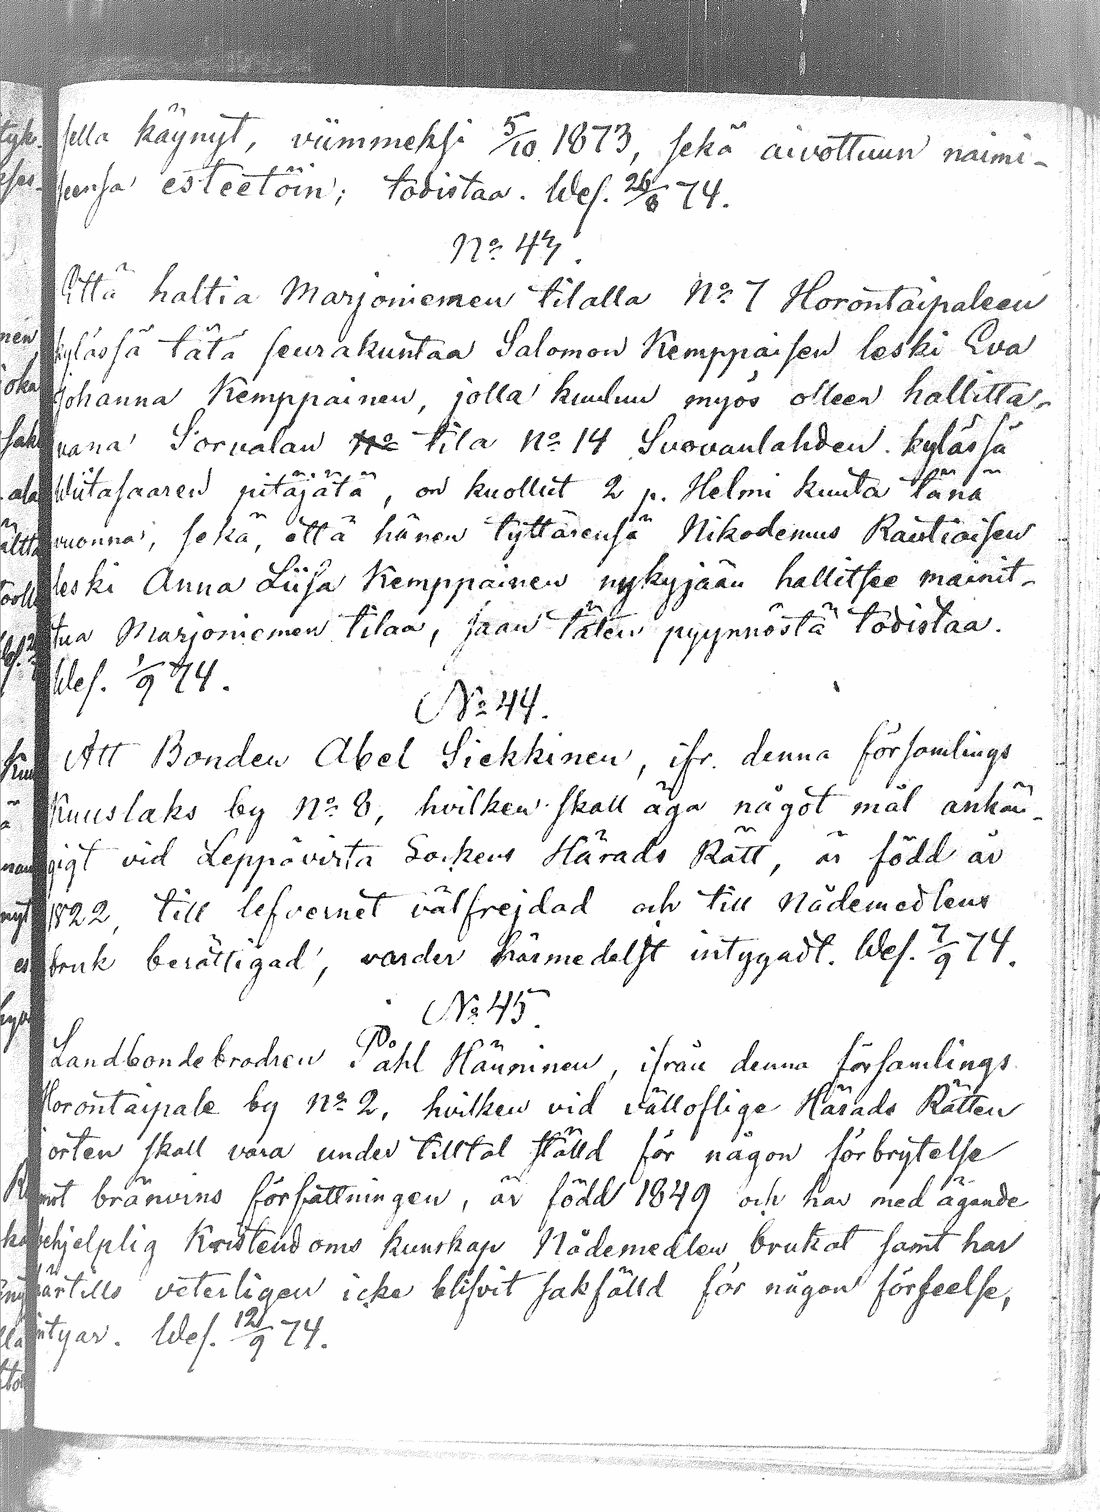 sella käynyt, viimmeksi 5/10 1873, sekä aivottuun naimi-
seensa esteetöin; todistaa. Wes. 26/8 74.
No 43.
Että haltia Marjoniemen tilalla No 7 Horontaipaleen
kylässä tätä seurakuntaa Salomon Kemppaisen leski Eva
Johanna Kemppainen, jolla kuuluu myös olleen hallitta-
vana Sorvalan tila No 14 Suovanlahden kylässä
Wiitasaaren pitäjätä, on kuollut 2 p. Helmi kuuta tänä
vuonna, sekä, että hänen tyttärensä Nikodemus Rautiaisen
leski Anna Liisa Kemppainen nykyjään hallitsee mainit-
tua Marjoniemen tilaa, saan täten pyynnöstä todistaa.
Wes. 1/9 74.
No 44.
Att Bonden Abel Siekkinen, ifr. denna församlings
Kuuslaks by No 8, hvilken skall äga något mål anhän-
gigt vid Leppävirta Sockens Härads Rätt, är född år
1822, till lefvernet välfrejdad och till Nådemedlens
bruk berättigad, varder härmedelst intygadt. Wes. 7/9 74.
No 45.
Landbondebrodren Påhl Hänninen, ifrån denna församlings
Horontaipale by No 2, hvilken vid välloflige Härads Rätten
i orten skall vara under tilltal ställd för någon förbrytelse
mot bränvins författningen, är född 1849 och har med ägande
behjelplig Kristendoms kunskap Nådemedlen brukat samt har
härtills veterligen icke blifvit sakfälld för någon förseelse,
intygar. Wes. 12/9 74.